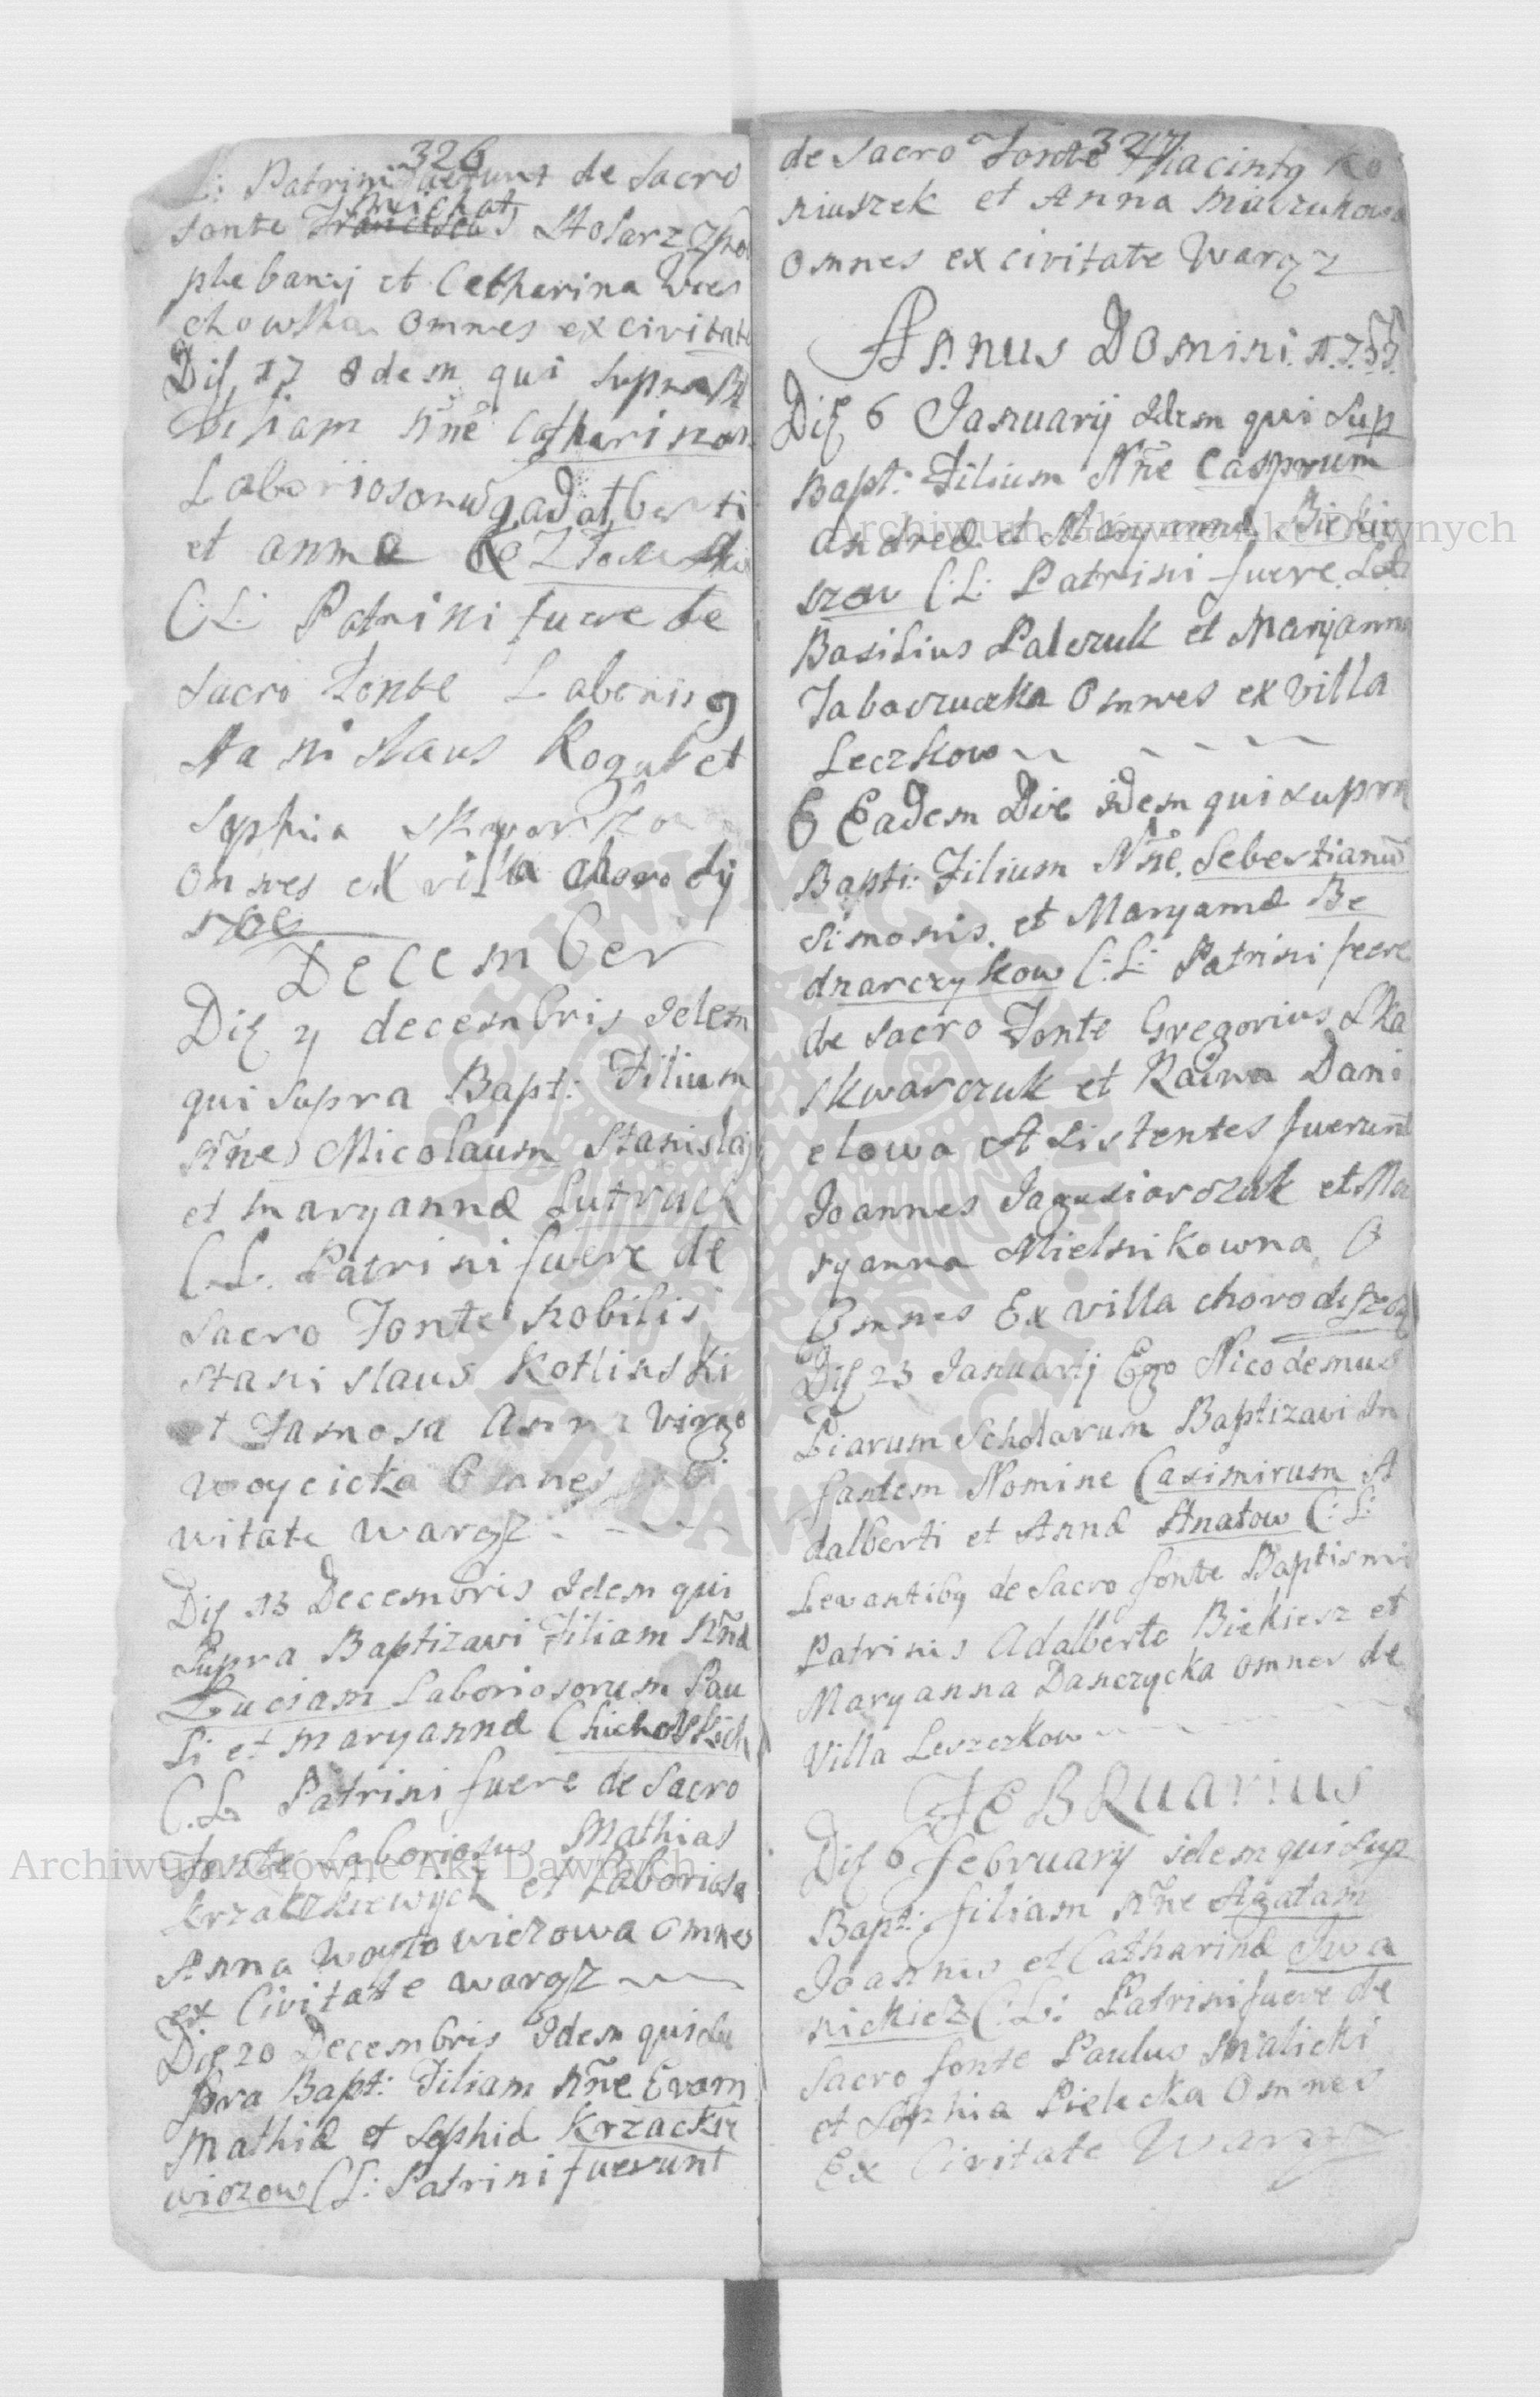 326
L: Patrini fuerunt de Sacro
Michał
fonte Franciscus Stolarz
plebanij et Catharina Woes
chowska omnes ex civitate
Die 17 Idem qui supra B
filiam Nne Catharinam
Laboriosorum adalberti
et anna Kozłowskie
C:L: Patrini fuere de
sacro Fonte Laboriosg
Stanislaus Rogal et
Sophia
omnes ex villa chorodij
szcze
December
Die 7 decembris Idem
qui supra Bapt: Filium
Nne Micolaum Stanislaj
et maryannæ Lutruck
C.L. Patrini fuere de
Sacro Fonte Nobilis
Stanislaus Kotlinski
et Famosa Anna Virgo
Woycicka Omnes Ci
vitate Waręz
Die 13 Decembris Idem qui
Supra Baptizavi Filiam Nne
Luciam Laboriosorum Pau
li et maryannæ Chicholskich
C.L. Patrini fuere de Sacro
Fonte Laboriosus Mathias
et Laboriosa
Anna Woytowiczowa omnes
ex Civitate Waręz
Die 20 Decembris Idem qui Su
pra Bapt: Filiam Nne Evam
Mathiæ et Sophiæ Krzackie
wiczow C L: Patrini fuerunt
327
de Sacro Fonte Hiacintg Ko
niuszek et Anna Maczukowa
Omnes ex civitate Waręz
Annus Domini 1755
Die 6 Januarij Idem qui Sup
Bapt: Filium Nne Casprum
Andreæ et Maryannæ Biekie
szow C:L: Patrini fuere Lab
Basilius Palczuk et Maryanna
Tabaczucka Omnes ex villa
Leczkow
6 Eadem Die idem qui supra
Bapti: Filium Nne. Sebestianu
Simonis. et Maryannæ Be
dnarczykow C:L: Patrini fuere
de Sacro Fonte Gregorius Ska
skwarczuk et Raina Dani
elowa Assistentes fuerunt
Joannes Jagusiarczuk et Ma
ryanna Mielnikowna O
Omnes Ex villa chorodiszcze
Die 23 Januarij Ego Nicodemus
Piarum Scholarum Baptizavi In
fantem Nomine Casimirum A
dalberti et Annæ Hnatow C:L:
Levantibg de Sacro fonte Baptismi
Patrinis Adalberto Biekiesz et
Maryanna Danczycka omnes de
Villa Leszczkow
FEBRuarius
Die 6 february idem qui Sup
Bapt: filiam Nne Agatam
Joannis et Catharinæ Iwa
nickiez C:L: Patrini fuere de
Sacro fonte Paulus Malicki
et Sophia Pielicka Omnes
Ex Civitate Waręz
Archiwum Główne Akt Dawnych
Archiwum Główne Akt Dawnych
ARCHIWUM GŁÓWNE AKT DAWNYCH